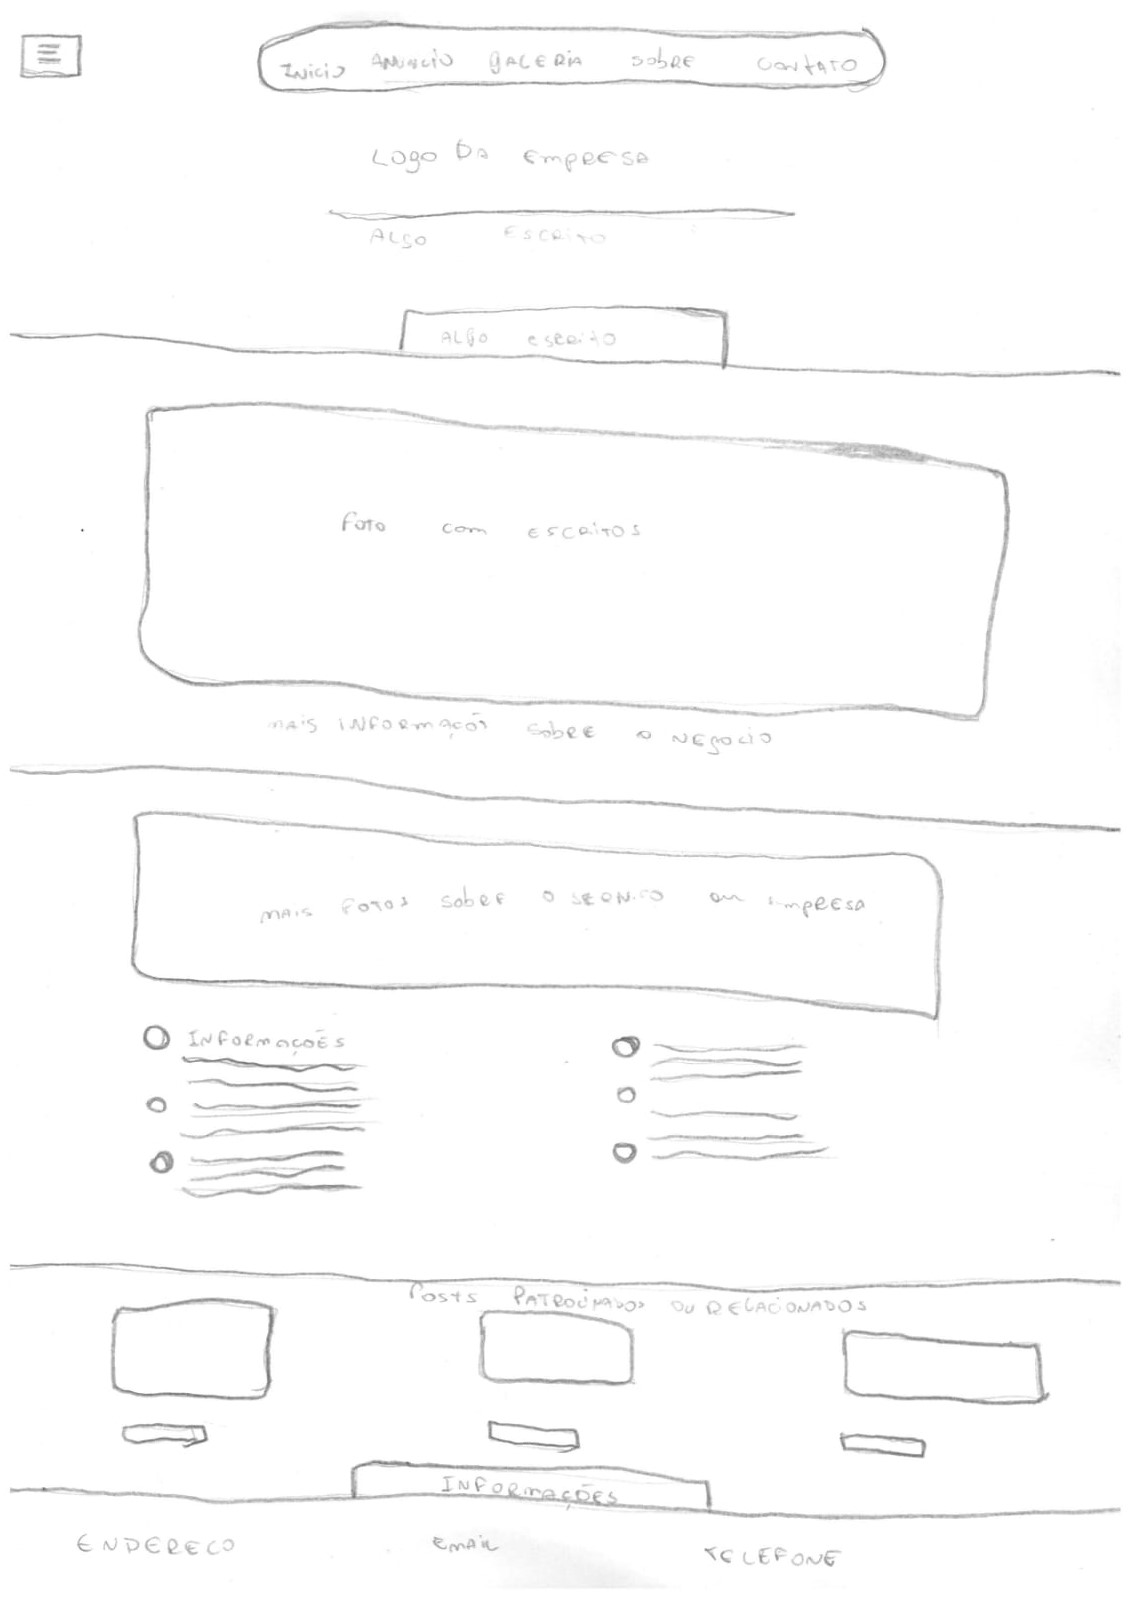 Inicio Anuncio galeria sobre contato
Logo Da Empresa
Algo Escrito
Algo escrito
Foto com escritos
mais informaçõs sobre o negocio
mais fotos sobre o serviço ou empresa
Informações
Posts Patrocinados ou relacionados
Informações
Endereco email telefone